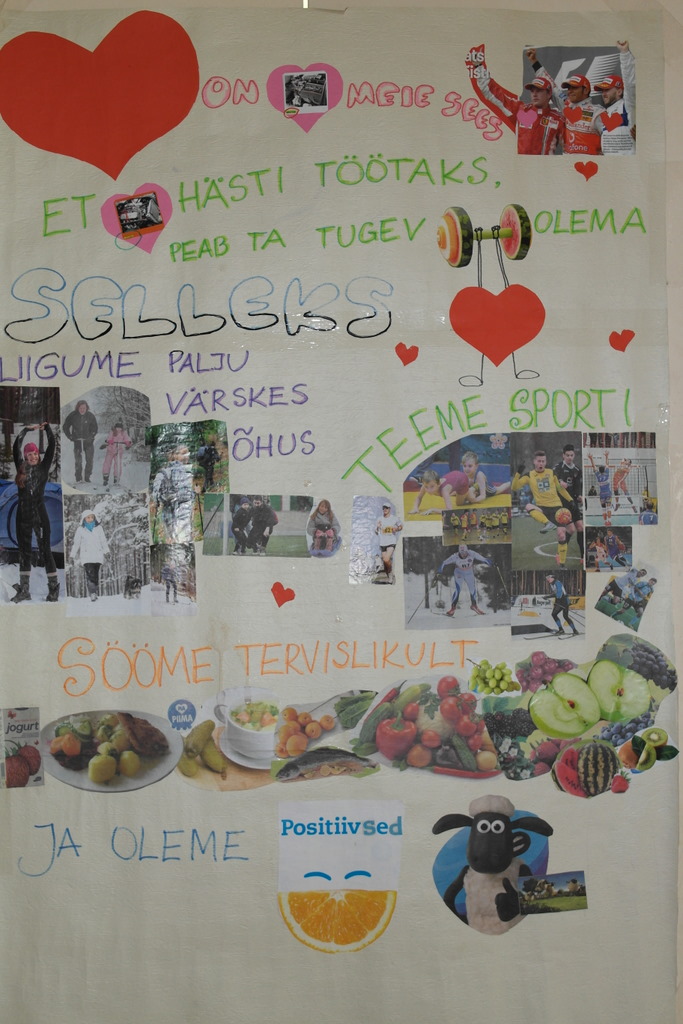 ON MEIE SEES
ET HÄSTI TÖÖTAKS,
PEAB TA TUGEV OLEMA
SELLEKS
LIIGUME PALJU
VÄRSKES
ÕHUS
TEEME SPORTI
SÖÖME TERVISLIKULT
jogurt
PIIMA
JA OLEME
Positiivsed